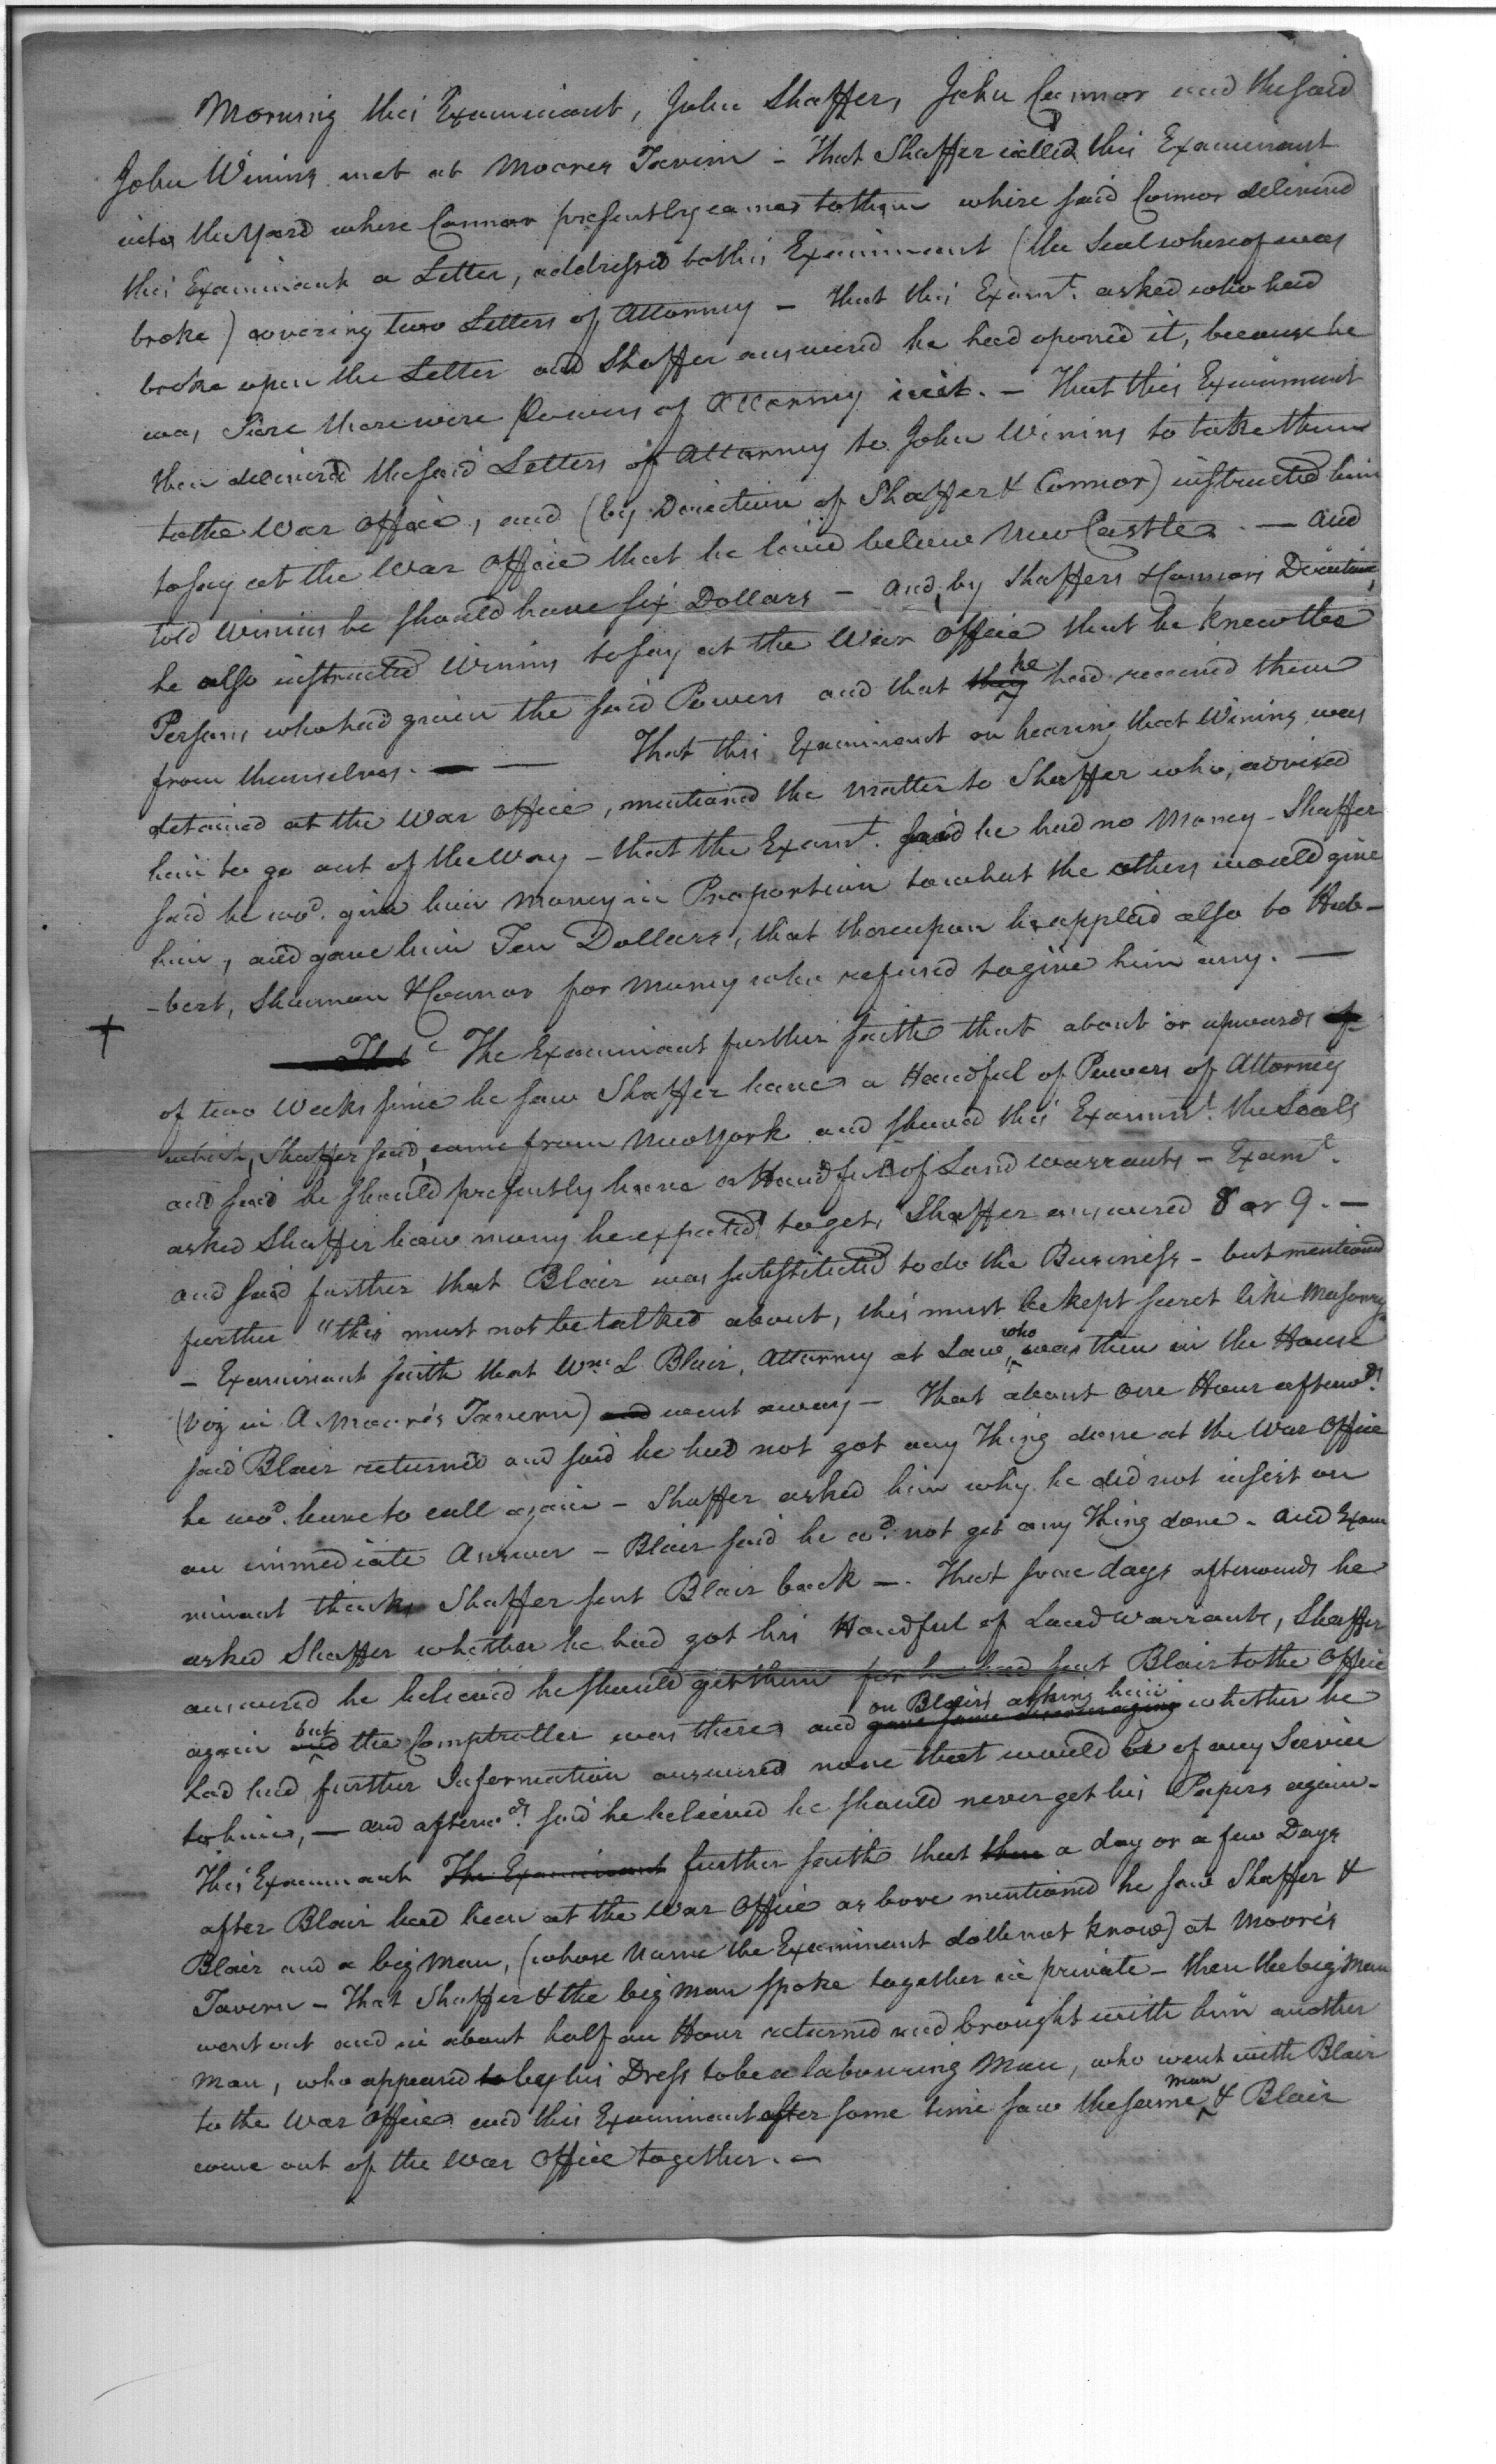 Morning this Examinant, John Shaffer, John Connor and the said
John Wining met at Moores Tavern - That Shaffer called this Examinant
into the Yard where Connor presently came to them where said Connor delivered
this Examinant a Letter, addressed to this Examinant (the Seal whereof was
broke) covering two Letters of Attorney - That this Examt. asked who had
broke open the Letter and Shaffer answered he had opened it, because he
was Sure there were Powers of Attorney in it. - That this Examinant
then delivered the said Letters of Attorney to John Wining to take them
to the War Office, and (by Direction of Shaffer & Connor) instructed him
to say at the War Office that he lived below New Castle. - and
told Wining he should have six Dollars - and, by Shaffers & Connors Direction,
he also instructed Wining to say at the War Office that he knew the
Persons who had given the said Powers and that they he had received them
from themselves. - - That this Examinant on hearing that Wining was
detained at the War Office, mentioned the matter to Shaffer who, advised
him to go out of the Way - that the Examt. said he had no Money - Shaffer
said he wod. give him Money in Proportion to what the others would give
him, and gave him Ten Dollars, that thereupon he applied also to Hub-
-bert, Sharman & Connor for Money who refused to give him any. -
+ That The Examinant further saith that about or upwards of
of two Weeks since he saw Shaffer have a Handful of Powers of Attorney
which, Shaffer said, came from New York and shewed this Examint. the Seals
and said he should presently have a Handful of Land warrants - Examt.
asked Shaffer how many he expected to get, Shaffer answered 8 or 9. -
and said further that Blair was substituted to do the Business - but mentioned
further "this must not be talked about, this must be kept secret like Masonry"
- Examinant saith that Wm. L. Blair, Attorney at Law, who was then in the House
(viz in A. Moore's Tavern) and went away - That about One Hour afterwds.
said Blair returned and said he had not got any Thing done at the War Office
he wod. have to call again - Shaffer asked him why he did not insist on
an immediate Answer - Blair said he cod. not get any Thing done - and Exam
minant thinks Shaffer sent Blair back -. That some days afterwards he
asked Shaffer whether he had got his Handful of Land warrants, Shaffer
answered he believed he should get them for he had sent Blair to the Office
again and but the Comptroller was there and gave some discouraging on Blair's asking him whether he
had had further Information answered none that would be of any Service
to him, - and afterwds. said he believed he should never get his Papers again -
This Examinant The Examinant further saith that then a day or a few Days
after Blair had been at the War Office as bove mentioned he saw Shaffer &
Blair and a big Man, (whose Name the Examinant doth not know) at Moore's
Tavern - That Shaffer & the big Man spoke together in private - then the big Man
went out and in about half an Hour returned and brought with him another
Man, who appeared to by his Dress to be a labouring Man, who went with Blair
to the War Office and this Examinant after some time saw the same man & Blair
come out of the War Office together. -